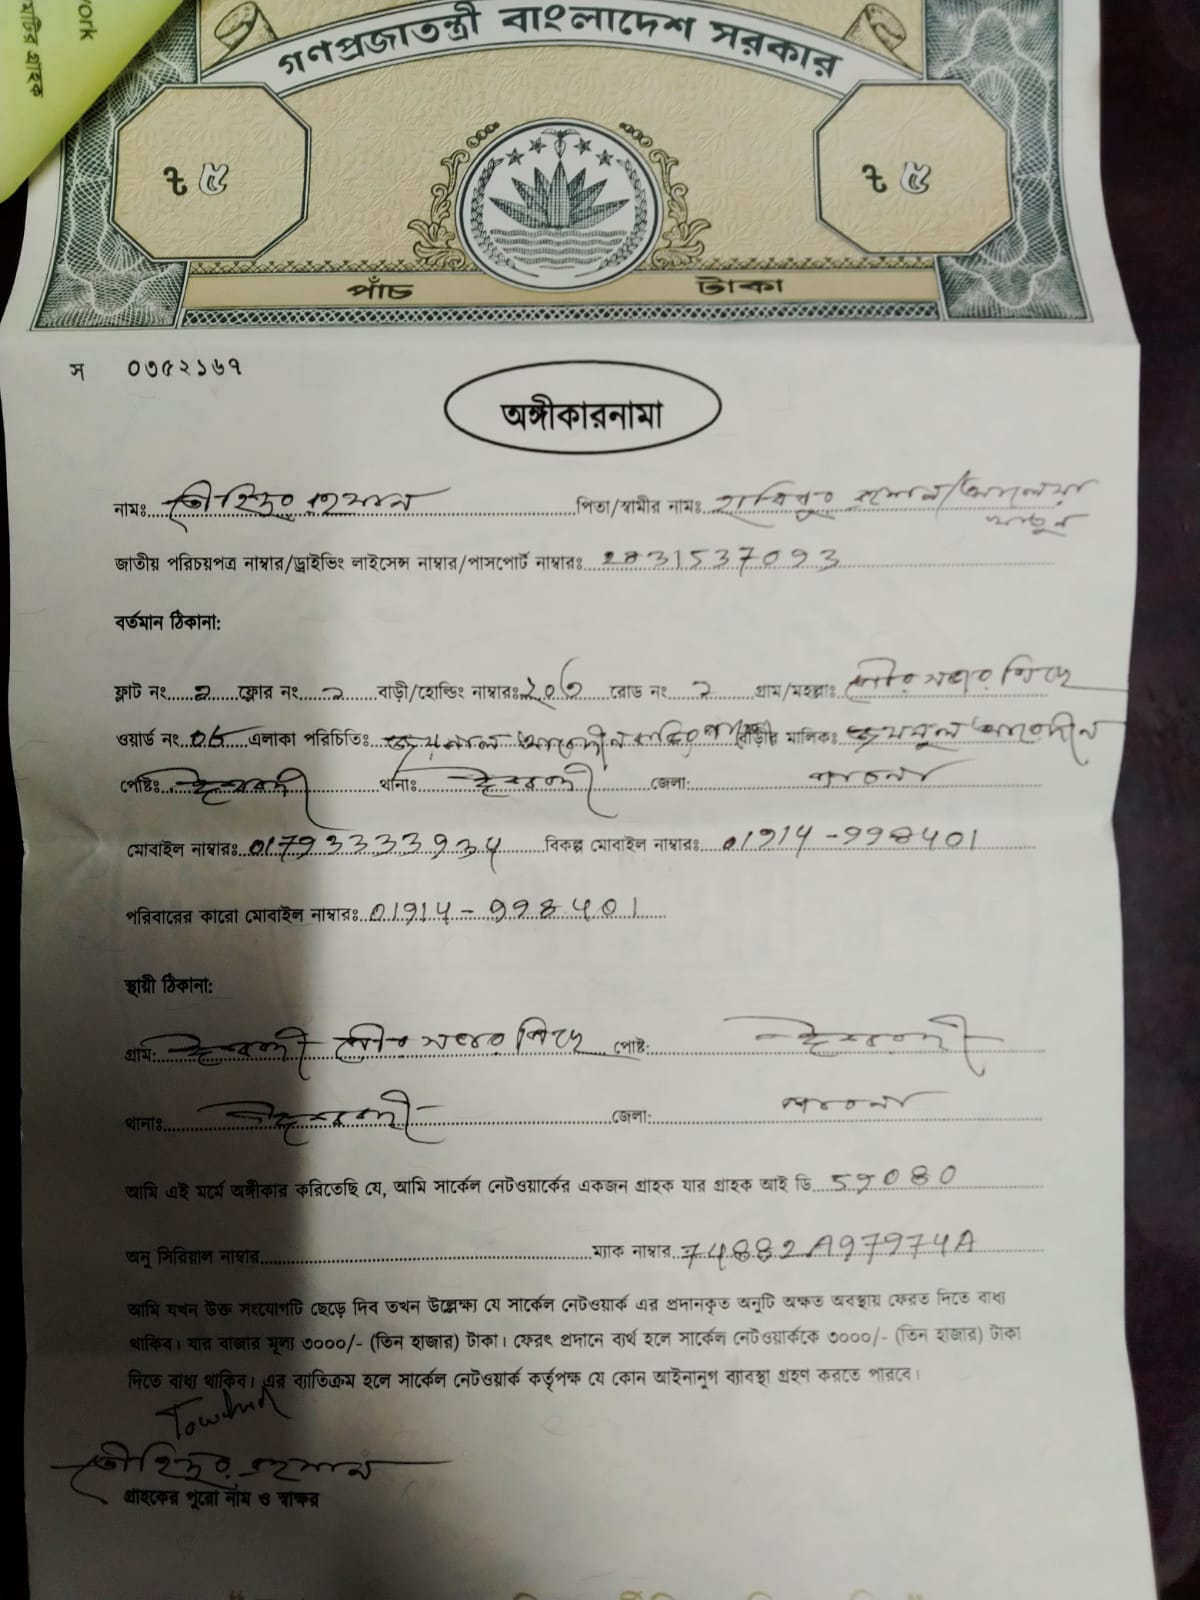 work
গণপ্রজাতন্ত্রী বাংলাদেশ সরকার
৳ ৫ ৳ ৫
পাঁচ টাকা
স ০৩৫২১৬৭
অঙ্গীকারনামা
নামঃ তৌহিদুর রহমান পিতা/স্বামীর নামঃ হাবিবুর রহমান/আলেয়া
খাতুন
জাতীয় পরিচয়পত্র নাম্বার/ড্রাইভিং লাইসেন্স নাম্বার/পাসপোর্ট নাম্বারঃ 2831537093
বর্তমান ঠিকানা:
ফ্লাট নং ২ ফ্লোর নং ২ বাড়ী/হোল্ডিং নাম্বারঃ রোড নং ২ গ্রাম/মহল্লাঃ
ওয়ার্ড নং 06 এলাকা পরিচিতিঃ বাড়ীর মালিকঃ জয়নুল আবেদীন
পোষ্টঃ ঈশ্বরদী থানাঃ ঈশ্বরদী জেলা: পাবনা
মোবাইল নাম্বারঃ 01793333934 বিকল্প মোবাইল নাম্বারঃ 01914-998401
পরিবারের কারো মোবাইল নাম্বারঃ 01914-998401
স্থায়ী ঠিকানা:
গ্রাম: ঈশ্বরদী পোষ্ট: ঈশ্বরদী
থানাঃ ঈশ্বরদী জেলা: পাবনা
আমি এই মর্মে অঙ্গীকার করিতেছি যে, আমি সার্কেল নেটওয়ার্কের একজন গ্রাহক যার গ্রাহক আই ডি 59080
অনু সিরিয়াল নাম্বার ম্যাক নাম্বার 74882A97974A
আমি যখন উক্ত সংযোগটি ছেড়ে দিব তখন উল্লেক্ষ্য যে সার্কেল নেটওয়ার্ক এর প্রদানকৃত অনুটি অক্ষত অবস্থায় ফেরত দিতে বাধ্য
থাকিব। যার বাজার মূল্য ৩০০০/- (তিন হাজার) টাকা। ফেরৎ প্রদানে ব্যর্থ হলে সার্কেল নেটওয়ার্ককে ৩০০০/- (তিন হাজার) টাকা
দিতে বাধ্য থাকিব। এর ব্যতিক্রম হলে সার্কেল নেটওয়ার্ক কর্তৃপক্ষ যে কোন আইনানুগ ব্যাবস্থা গ্রহণ করতে পারবে।
Towhid
তৌহিদুর রহমান
গ্রাহকের পুরো নাম ও স্বাক্ষর